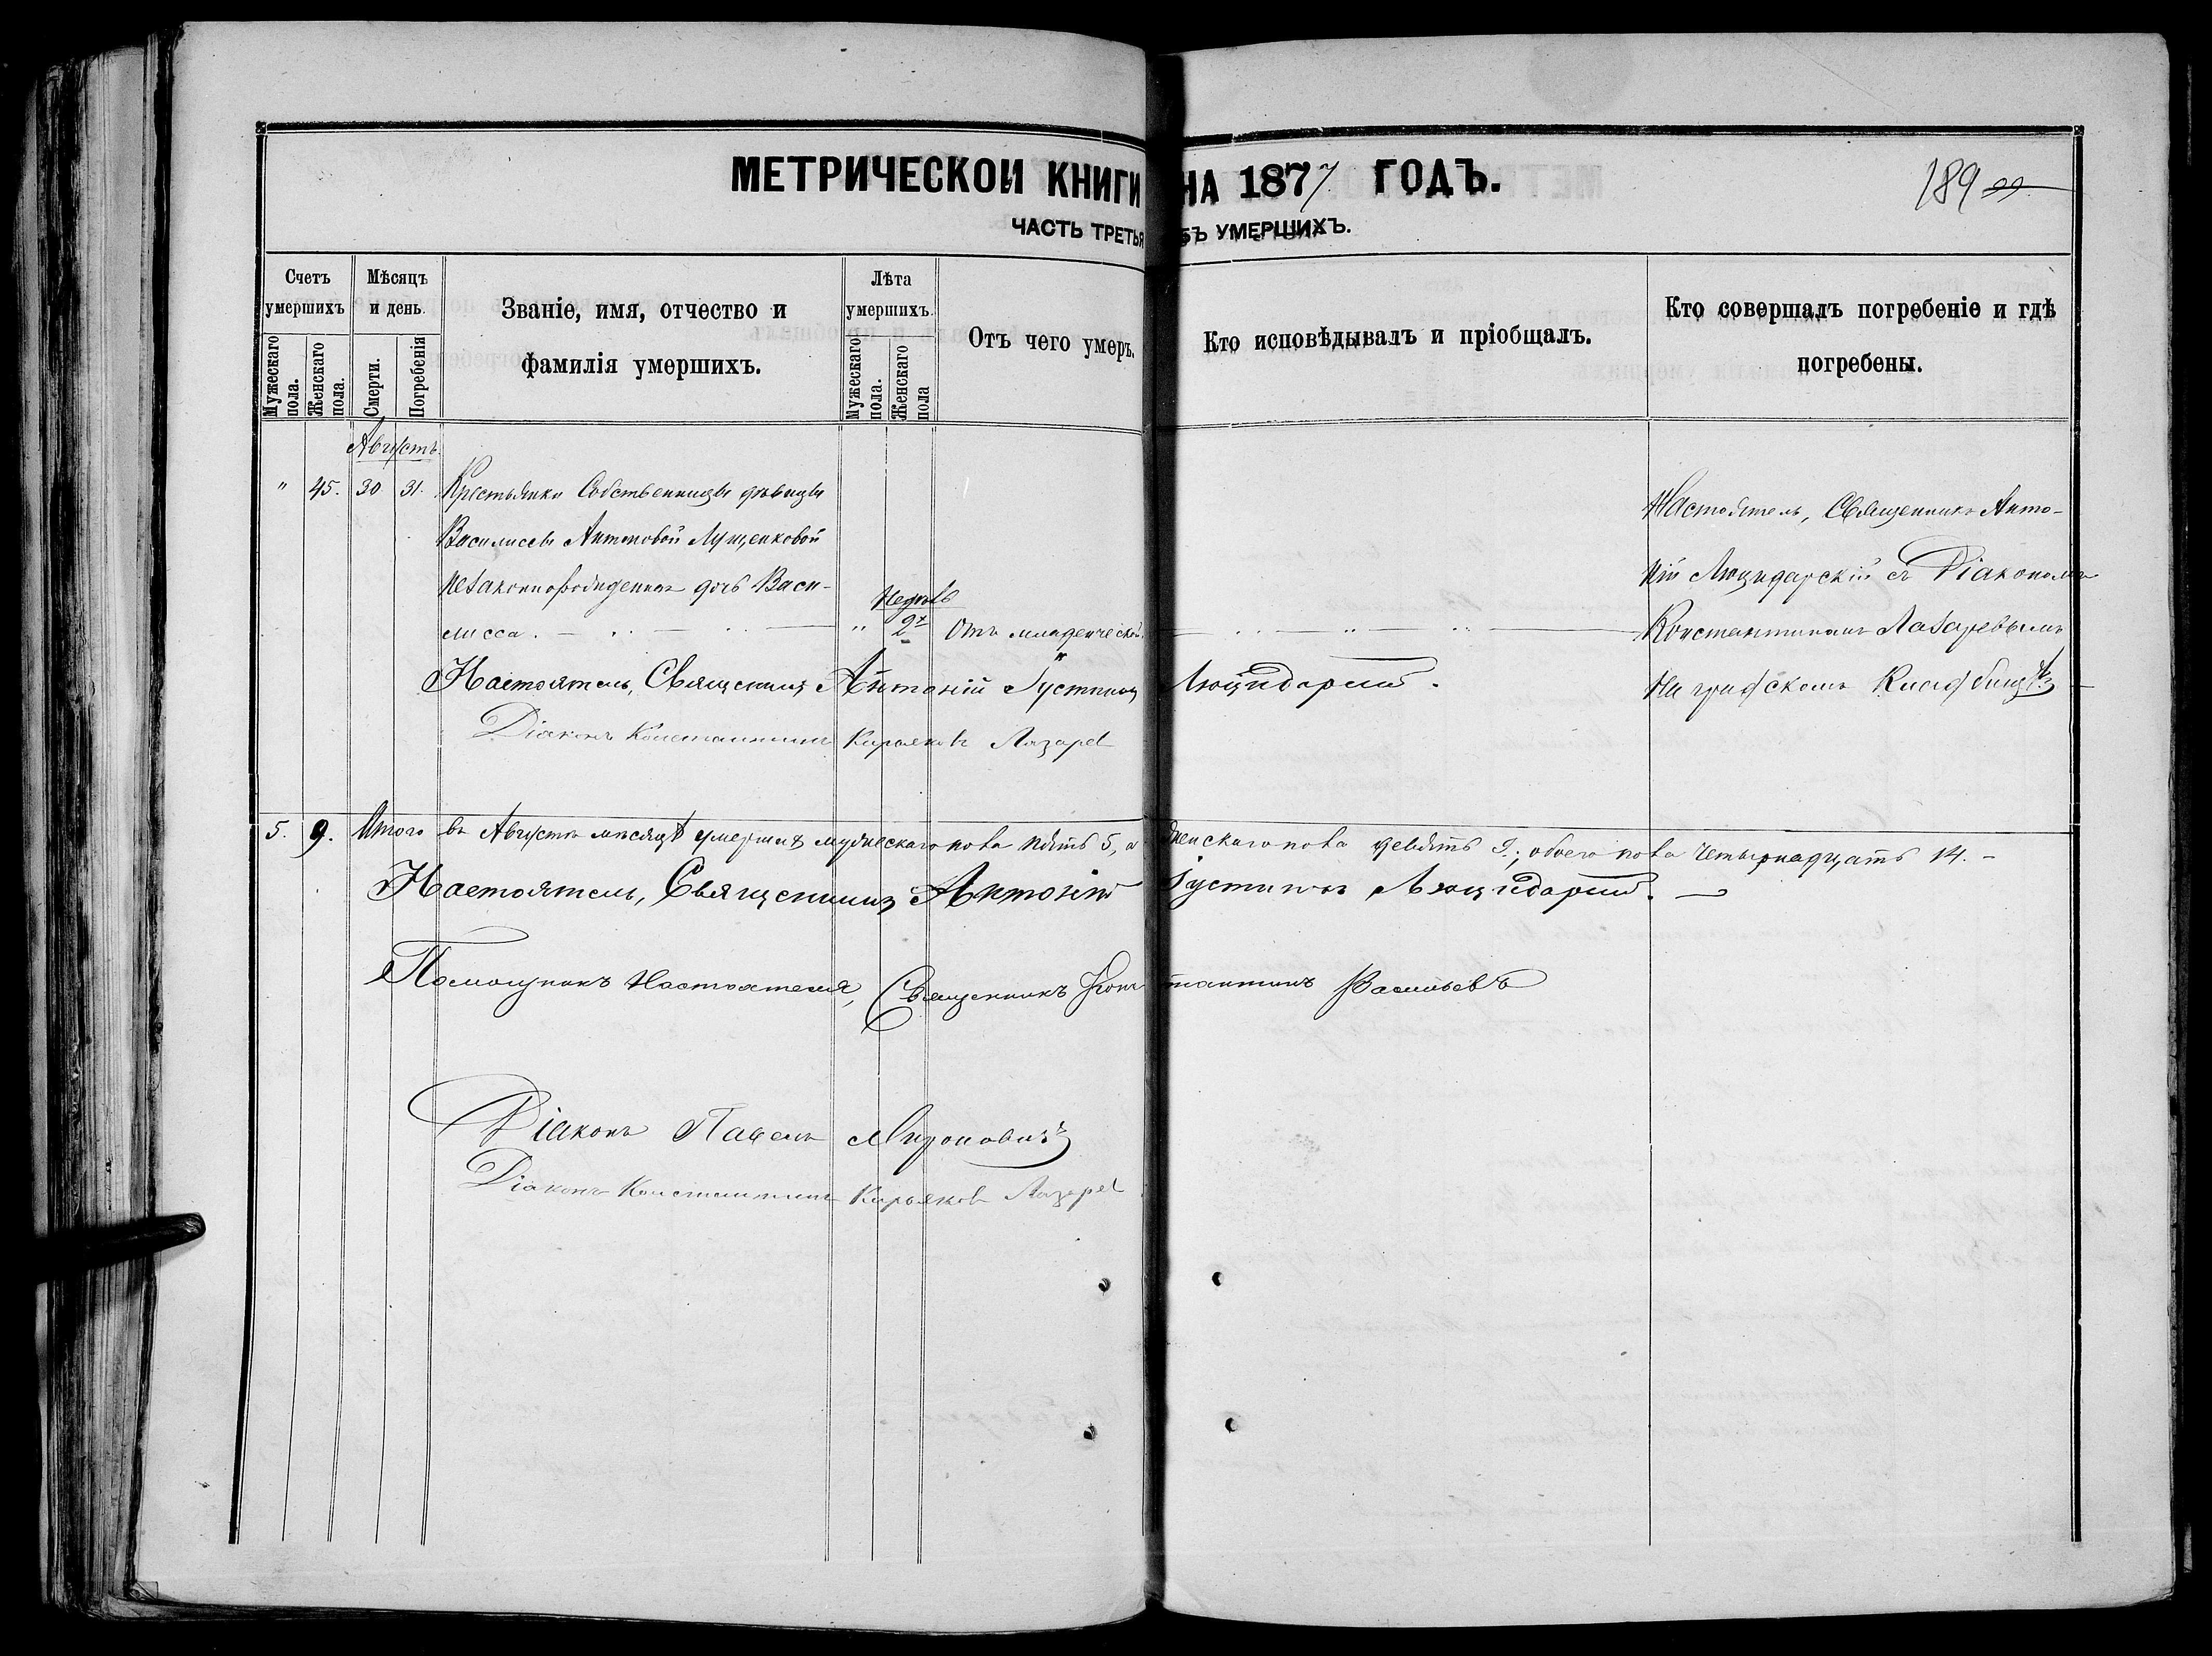 МЕТРИЧЕСКОЙ КНИГИ НА 1877 ГОДЪ.
189
ЧАСТЬ ТРЕТЬЯ БЪ УМЕРШИХЪ.
Счетъ умершихъ
Мужескаго пола.
Женскаго пола.
Мѣсяцъ и день.
Смерти.
Погребенія
Званіе, имя, отчество и фамилія умершихъ.
Лѣта умершихъ.
Мужескаго пола.
Женскаго пола
Отъ чего умеръ.
Кто исповѣдывалъ и пріобщалъ.
Кто совершалъ погребеніе и гдѣ погребены.
Августъ.
" 45. 30 31. Крестьянки Собственницы дѣвицы
Василиссы Антоновой Лущенковой
незаконнорожденная дочь Васи-
лисса. " Недѣль 2 Отъ младенческой.
Настоятель, Священникъ Анто-
ній Люцидарскій съ Діакономъ
Константиномъ Лазаревымъ
На графскомъ Кладбищѣ
Настоятель, Священникъ Антоній Іустиновъ Люцидарскій.
Діаконъ Константинъ Кирьяковъ Лазарев
5. 9. Итого въ Августѣ мѣсяцѣ умершихъ мужескаго пола пять 5, а женскаго пола девять 9., обоего пола четырнадцать 14. -
Настоятель, Священникъ Антоній Іустиновъ Люцидарскій.
Помощникъ Настоятеля, Священникъ Константинъ Васильевъ
Діаконъ Павелъ Мироновичъ
Діаконъ Константинъ Кирьяков Лазарев